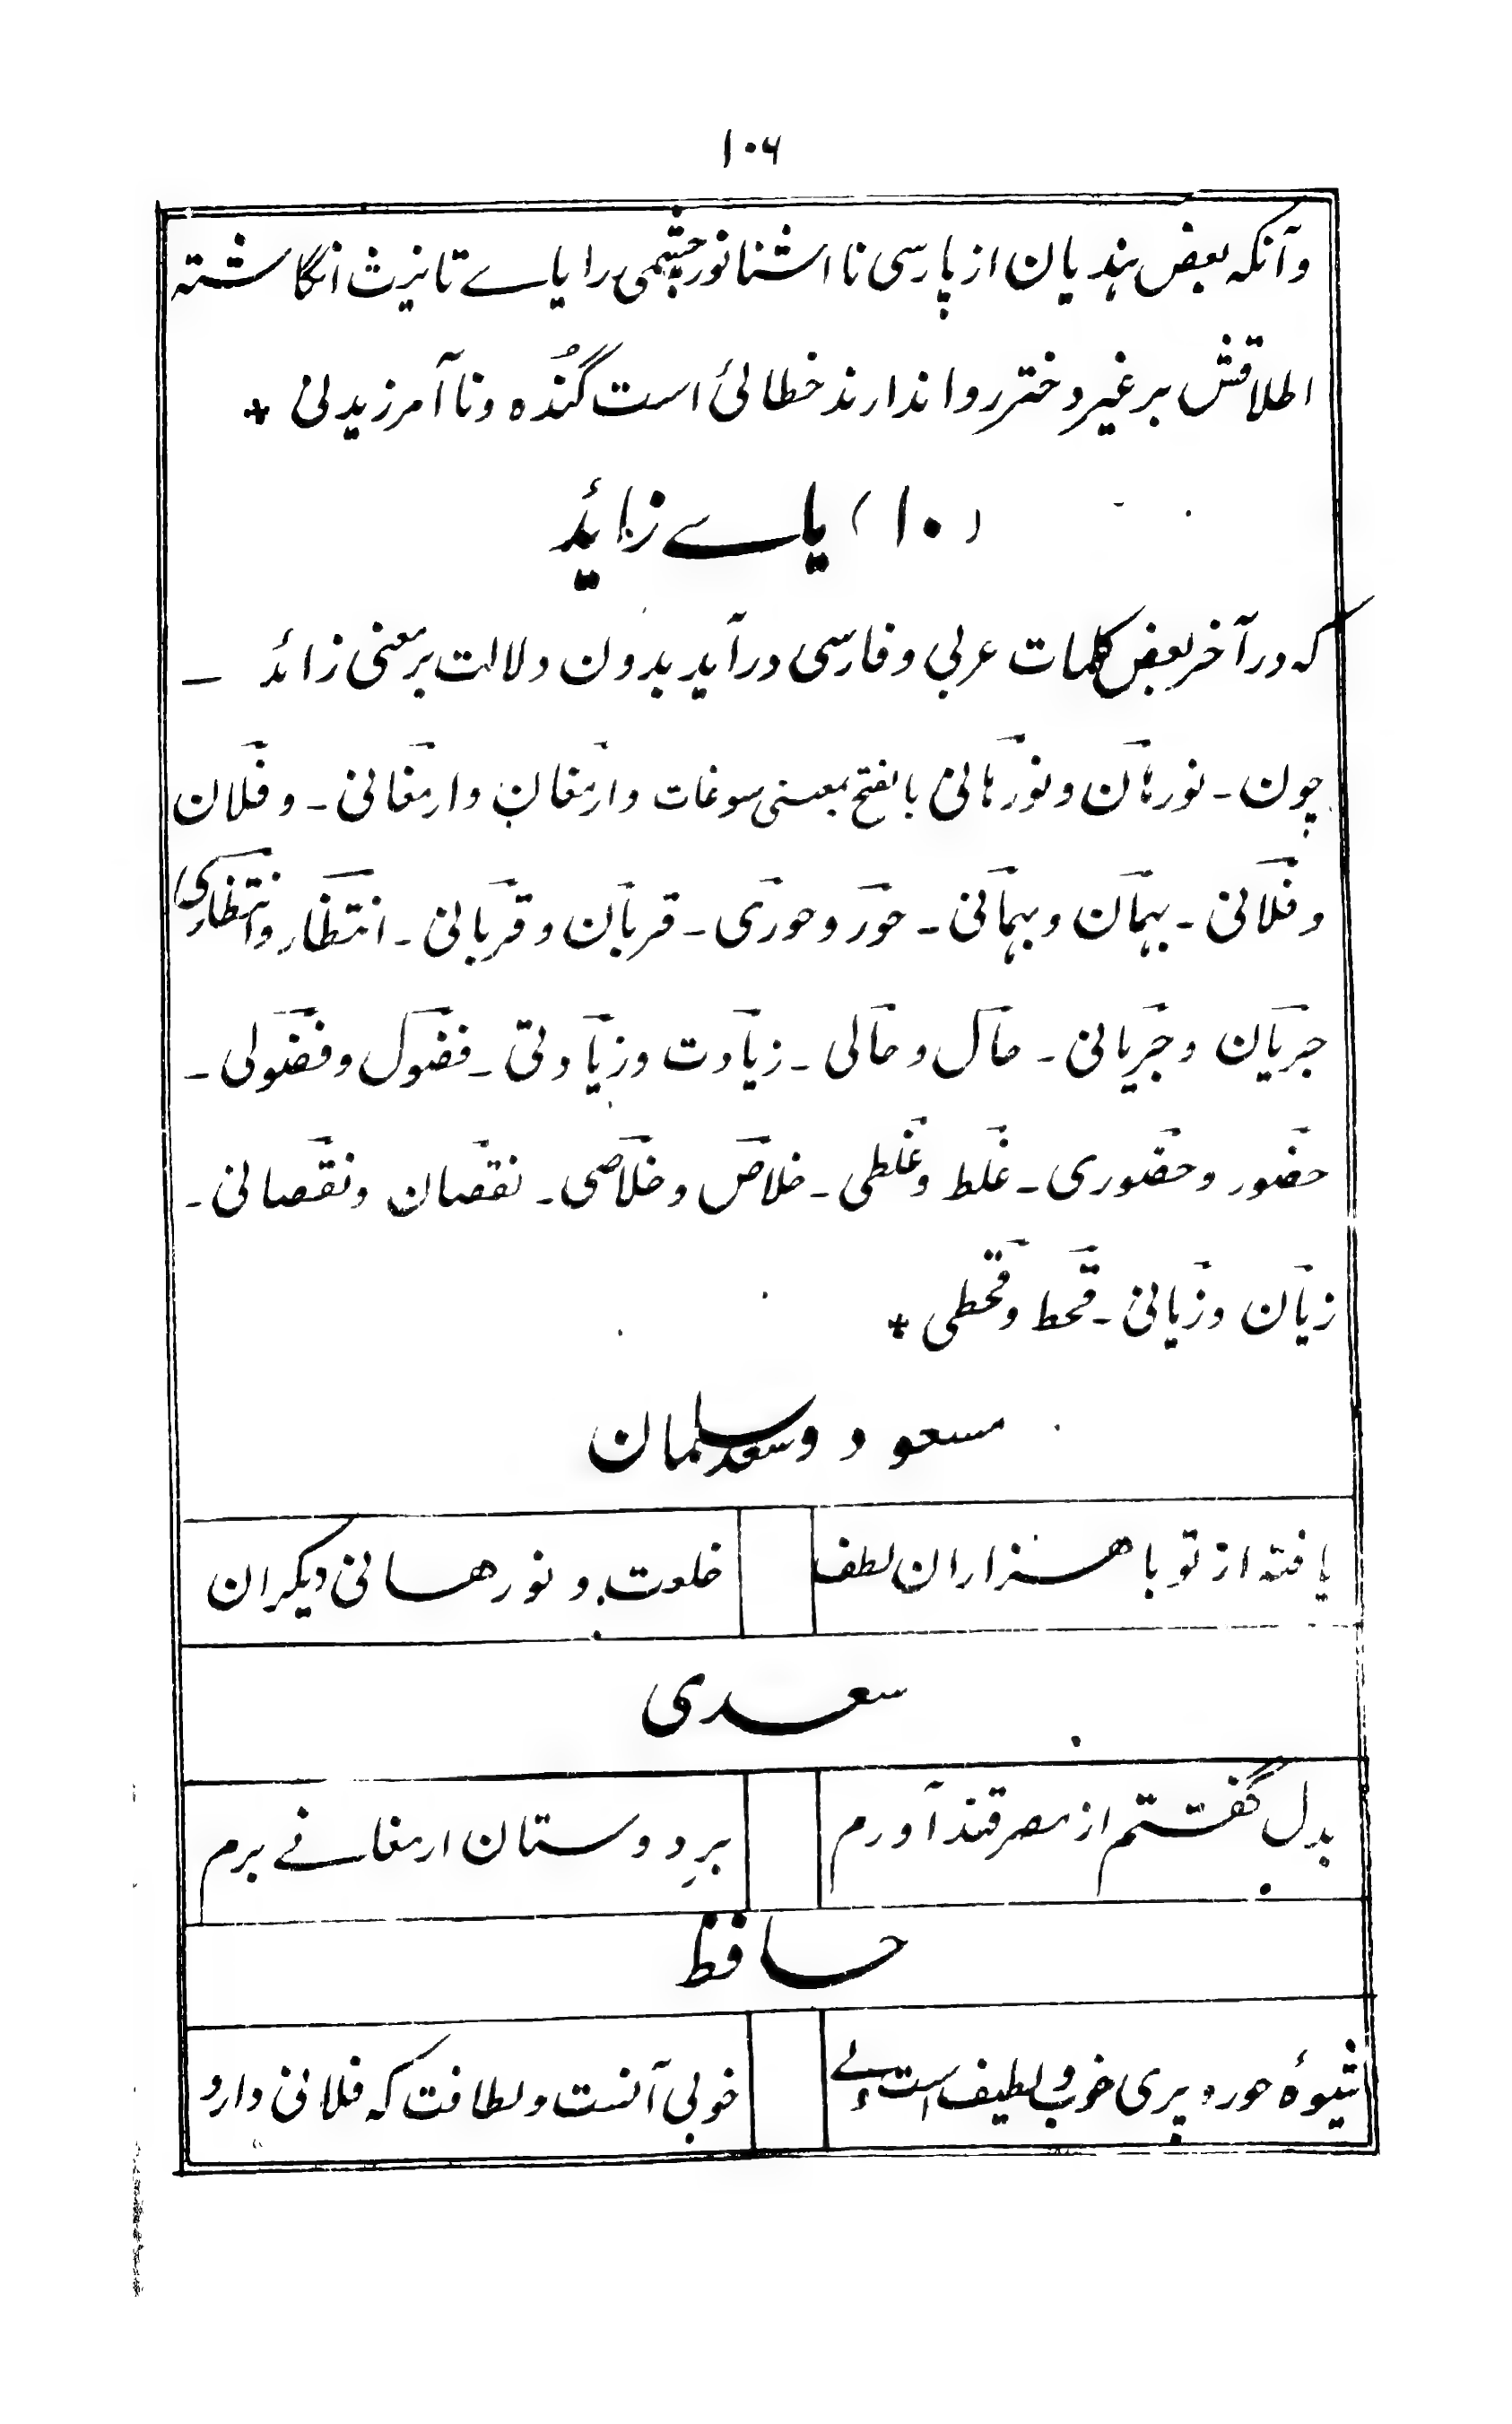 ۱۰۶
وآنکه بعض ہندیان از پارسی نا اشنا نور چشمی را یاے تانیث انگاشتہ
اطلاقش بر غیر دختر روا ندارند خطائی است گُندہ ونا آمرزیدنی *
(۱۰) یاے زائد
کہ در آخر بعض کلمات عربی و فارسی درآید بدون دلالت بر معنی زائد ــ
چون ـ نورہان و نورہانی بالفتح بمعنی سوغات و ارمغان و ارمغانی ـ و فلان
و فلانی ـ بہمان و بہمانی ـ حور و حوری ـ قربان و قربانی ـ انتظار و انتظاری
جریان و جریانی ـ حال و حالی ـ زیادت و زیادتی ـ فضول و فضولی ـ
حضور و حضوری ـ غلط و غلطی ـ خلاص و خلاصی ـ نقصان و نقصانی ـ
زیان و زیانی ـ قحط و قحطی *
مسعود وسعد سلمان
یافتہ از تو با ھزاران لطف خلعت و نورھانی دیگران
سعدی
بدل گفتم از مصر قند آورم برِ دوستان ارمغانے برم
حافظ
شیوۂ حور و پری خوب و لطیف است ولے خوبی آنست و لطافت کہ فلانی دارد